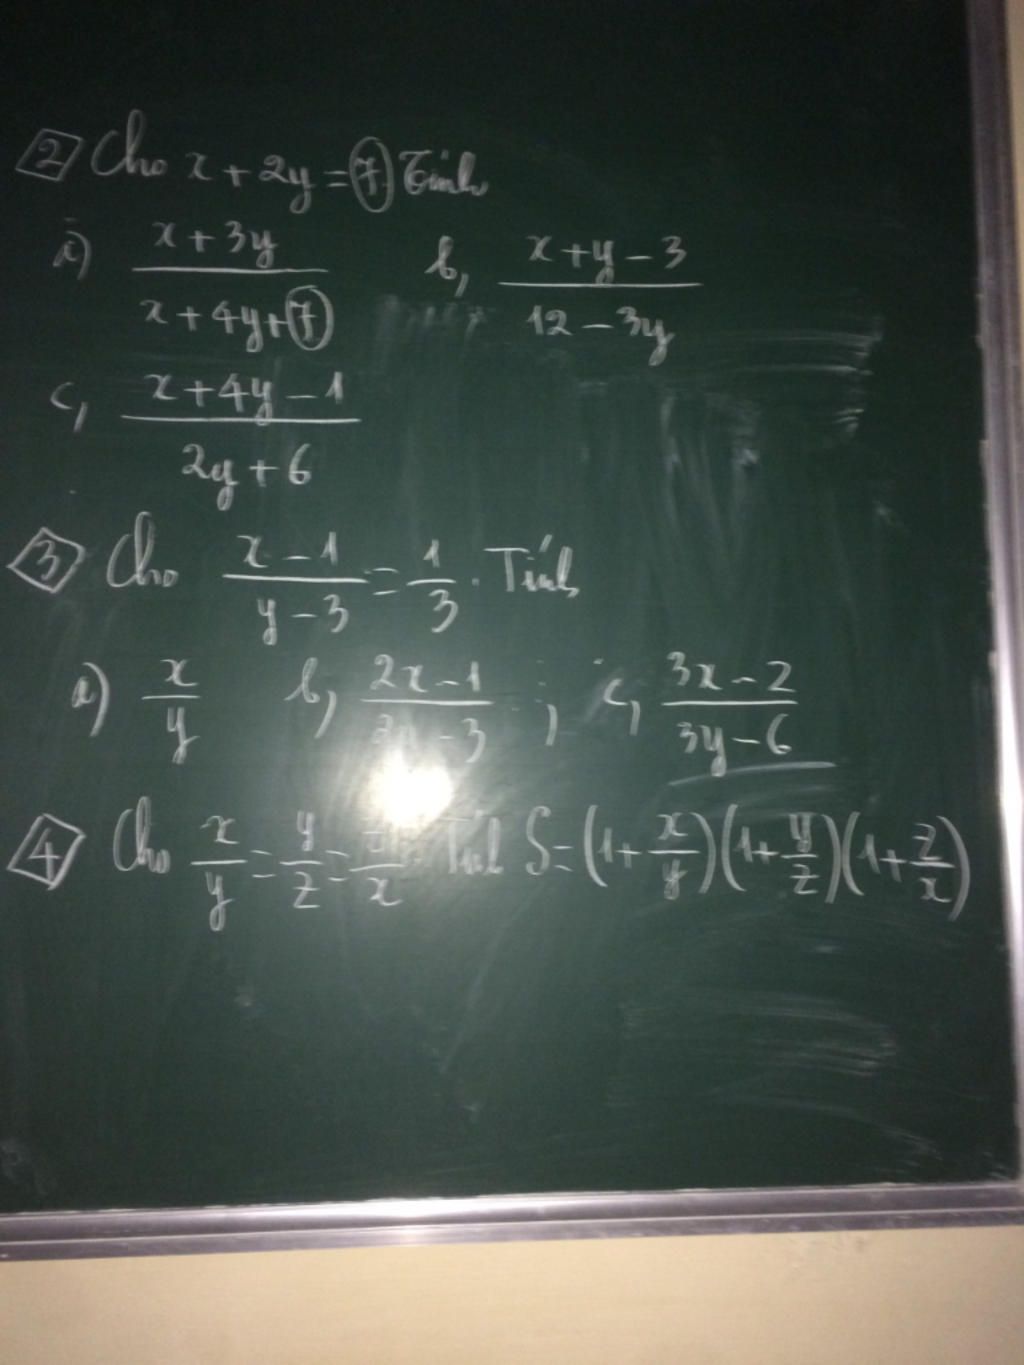 2 Cho x + 2y = 7. Tính
a) (x + 3y)/(x + 4y + 7) b, (x + y - 3)/(12 - 3y)
c, (x + 4y - 1)/(2y + 6)
3 Cho (x - 1)/(y - 3) = 1/3. Tính
a) x/y b, (2x - 1)/( - 3) ; c, (3x - 2)/(3y - 6)
4 Cho x/y = y/z = z/x. Tính S = (1 + x/y)(1 + y/z)(1 + z/x)